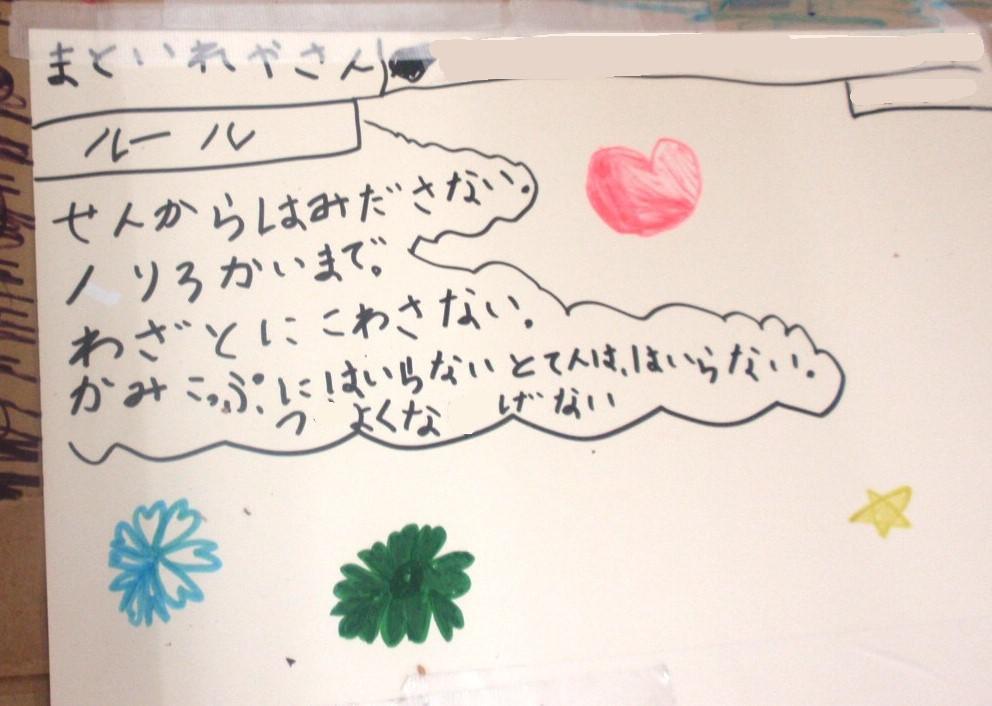 まといれやさん
ルール
せんからはみださない。
人りろかいまで。
わざとにこわさない。
かみこっぷ。にはいらないとてんは、はいらない。
つよくなげない